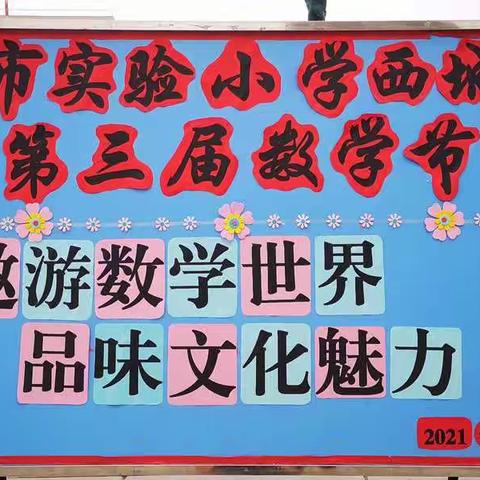 市实验小学西城
第三届数学节
遨游数学世界
品味文化魅力
2021